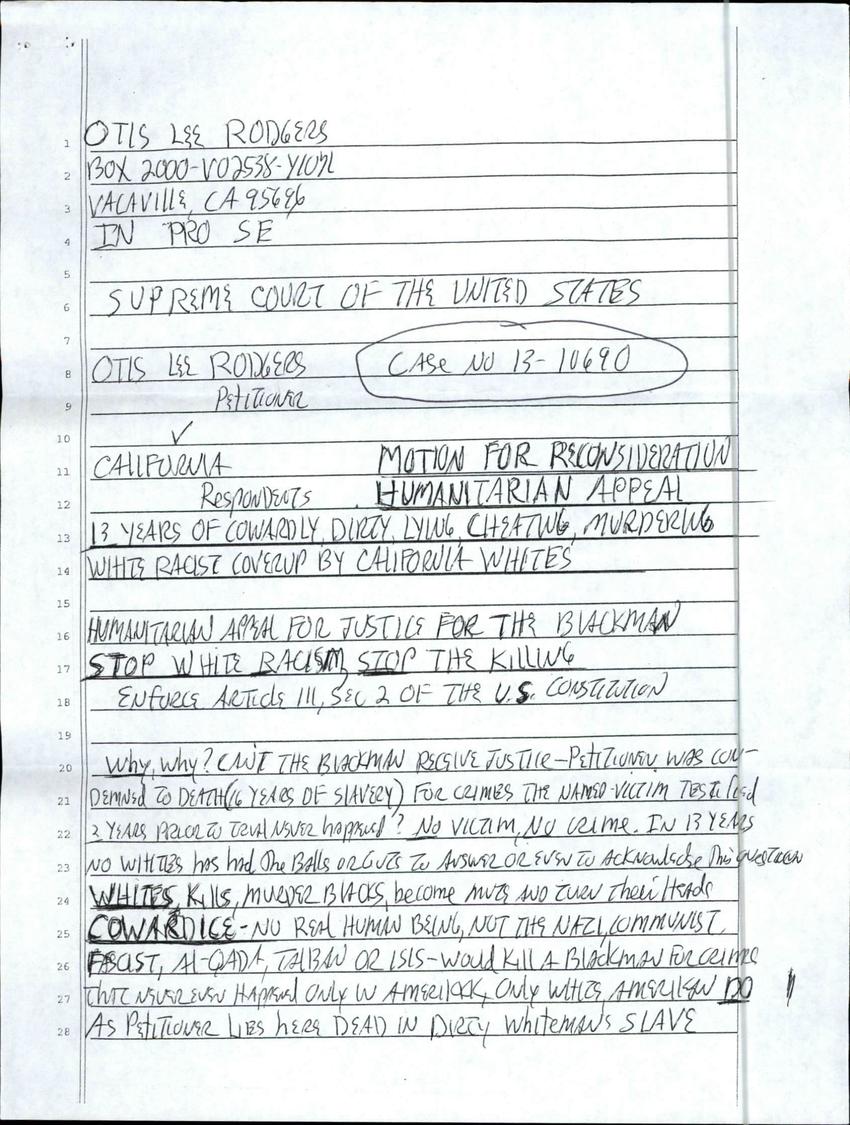 1 OTIS LEE RODGERS
2 BOX 2000-V02538-Y107L
3 VACAVILLE, CA 95696
4 IN PRO SE
5
6 SUPREME COURT OF THE UNITED STATES
7
8 OTIS LEE RODGERS CASE NO 13-10690
9 PETITIONER
10 ✓
11 CALIFORNIA MOTION FOR RECONSIDERATION
12 RESPONDENTS HUMANITARIAN APPEAL
13 13 YEARS OF COWARDLY, DIRTY, LYING, CHEATING, MURDERING
14 WHITE RACIST COVERUP BY CALIFORNIA WHITES
15
16 HUMANITARIAN APPEAL FOR JUSTICE FOR THE BLACKMAN
17 STOP WHITE RACISM, STOP THE KILLING
18 ENFORCE ARTICLE III, SEC 2 OF THE U.S. CONSTITUTION
19
20 Why, why? CAN'T THE BLACKMAN RECEIVE JUSTICE - PETITIONER WAS CON-
21 DEMNED TO DEATH (16 YEARS OF SLAVERY) FOR CRIMES THE NAMED-VICTIM TESTIFIED
22 2 YEARS PRIOR TO TRIAL NEVER happened? NO VICTIM, NO CRIME. IN 13 YEARS
23 NO WHITIES has had The BALLS OR GUTS TO ANSWER OR EVEN TO ACKNOWLEDGE This question
24 WHITES, Kills, MURDER BLACKS, become MUTE AND TURN Their HeADs
25 COWARDICE - NO REAL HUMAN BEING, NOT THE NAZI, COMMUNIST,
26 FACIST, Al-QADA, TALIBAN OR ISIS - Would Kill A BlACKMAN FOR CRIMES
27 THAT NEVER EVEN HAPPENED ONLY IN AMERIKKK, ONLY WHITE, AMERIKAN DO
28 AS PETITIONER LIES HERE DEAD IN DIRTY WHITEMAN'S SLAVE